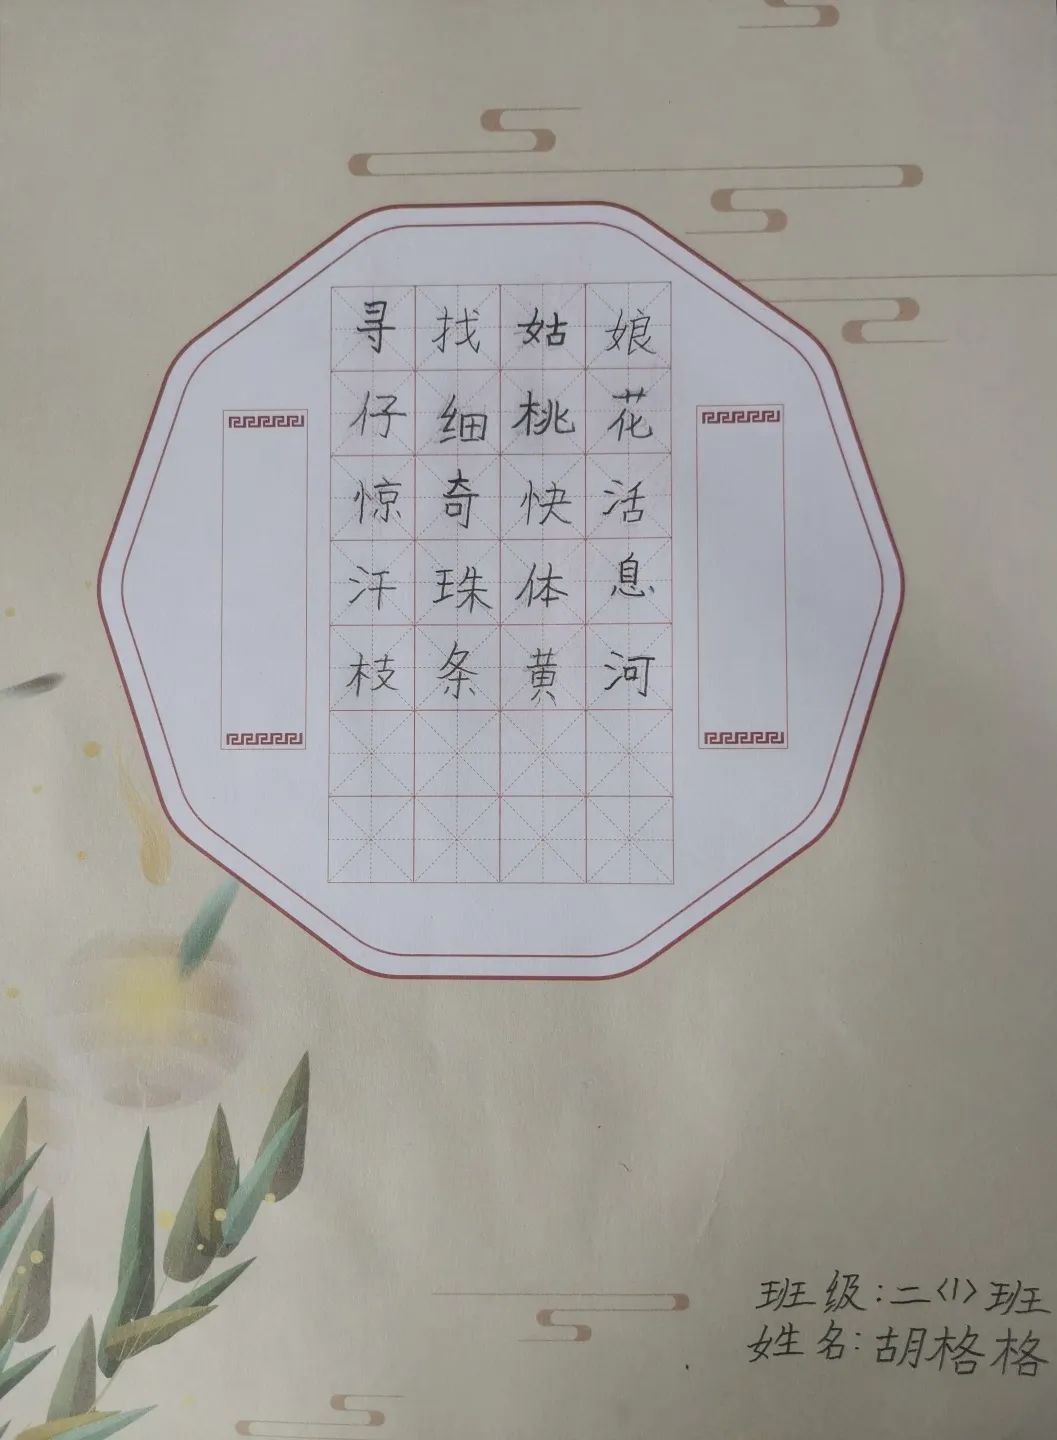 寻找姑娘
仔细桃花
惊奇快活
汗珠体息
枝条黄河
班级:二<1>班
姓名:胡格格